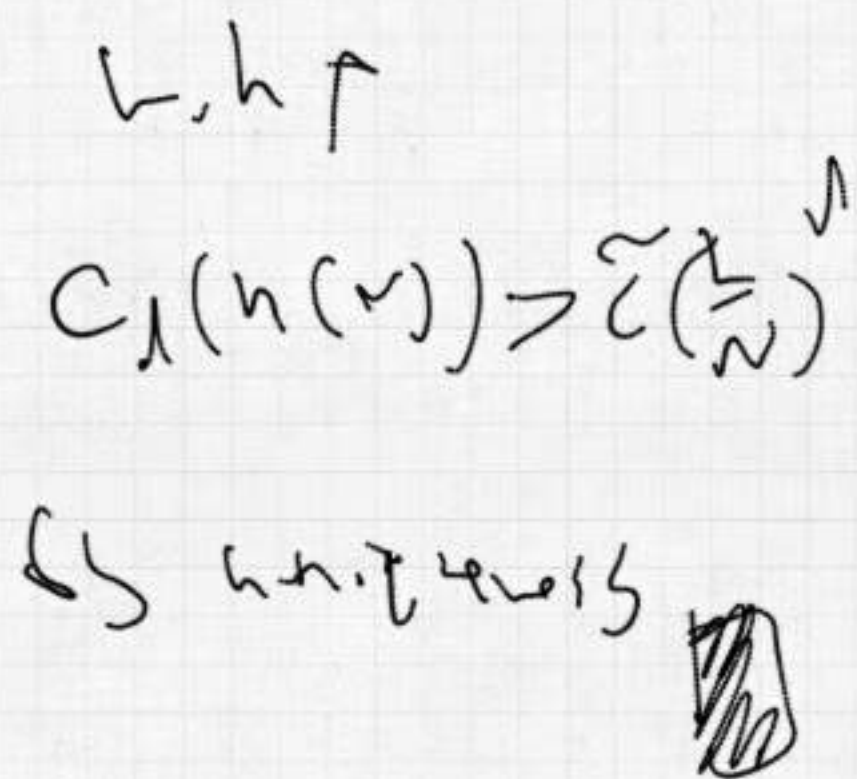 L, h ↑
C₁(h(N)) > c̃(L/N)^1
by uniqueness